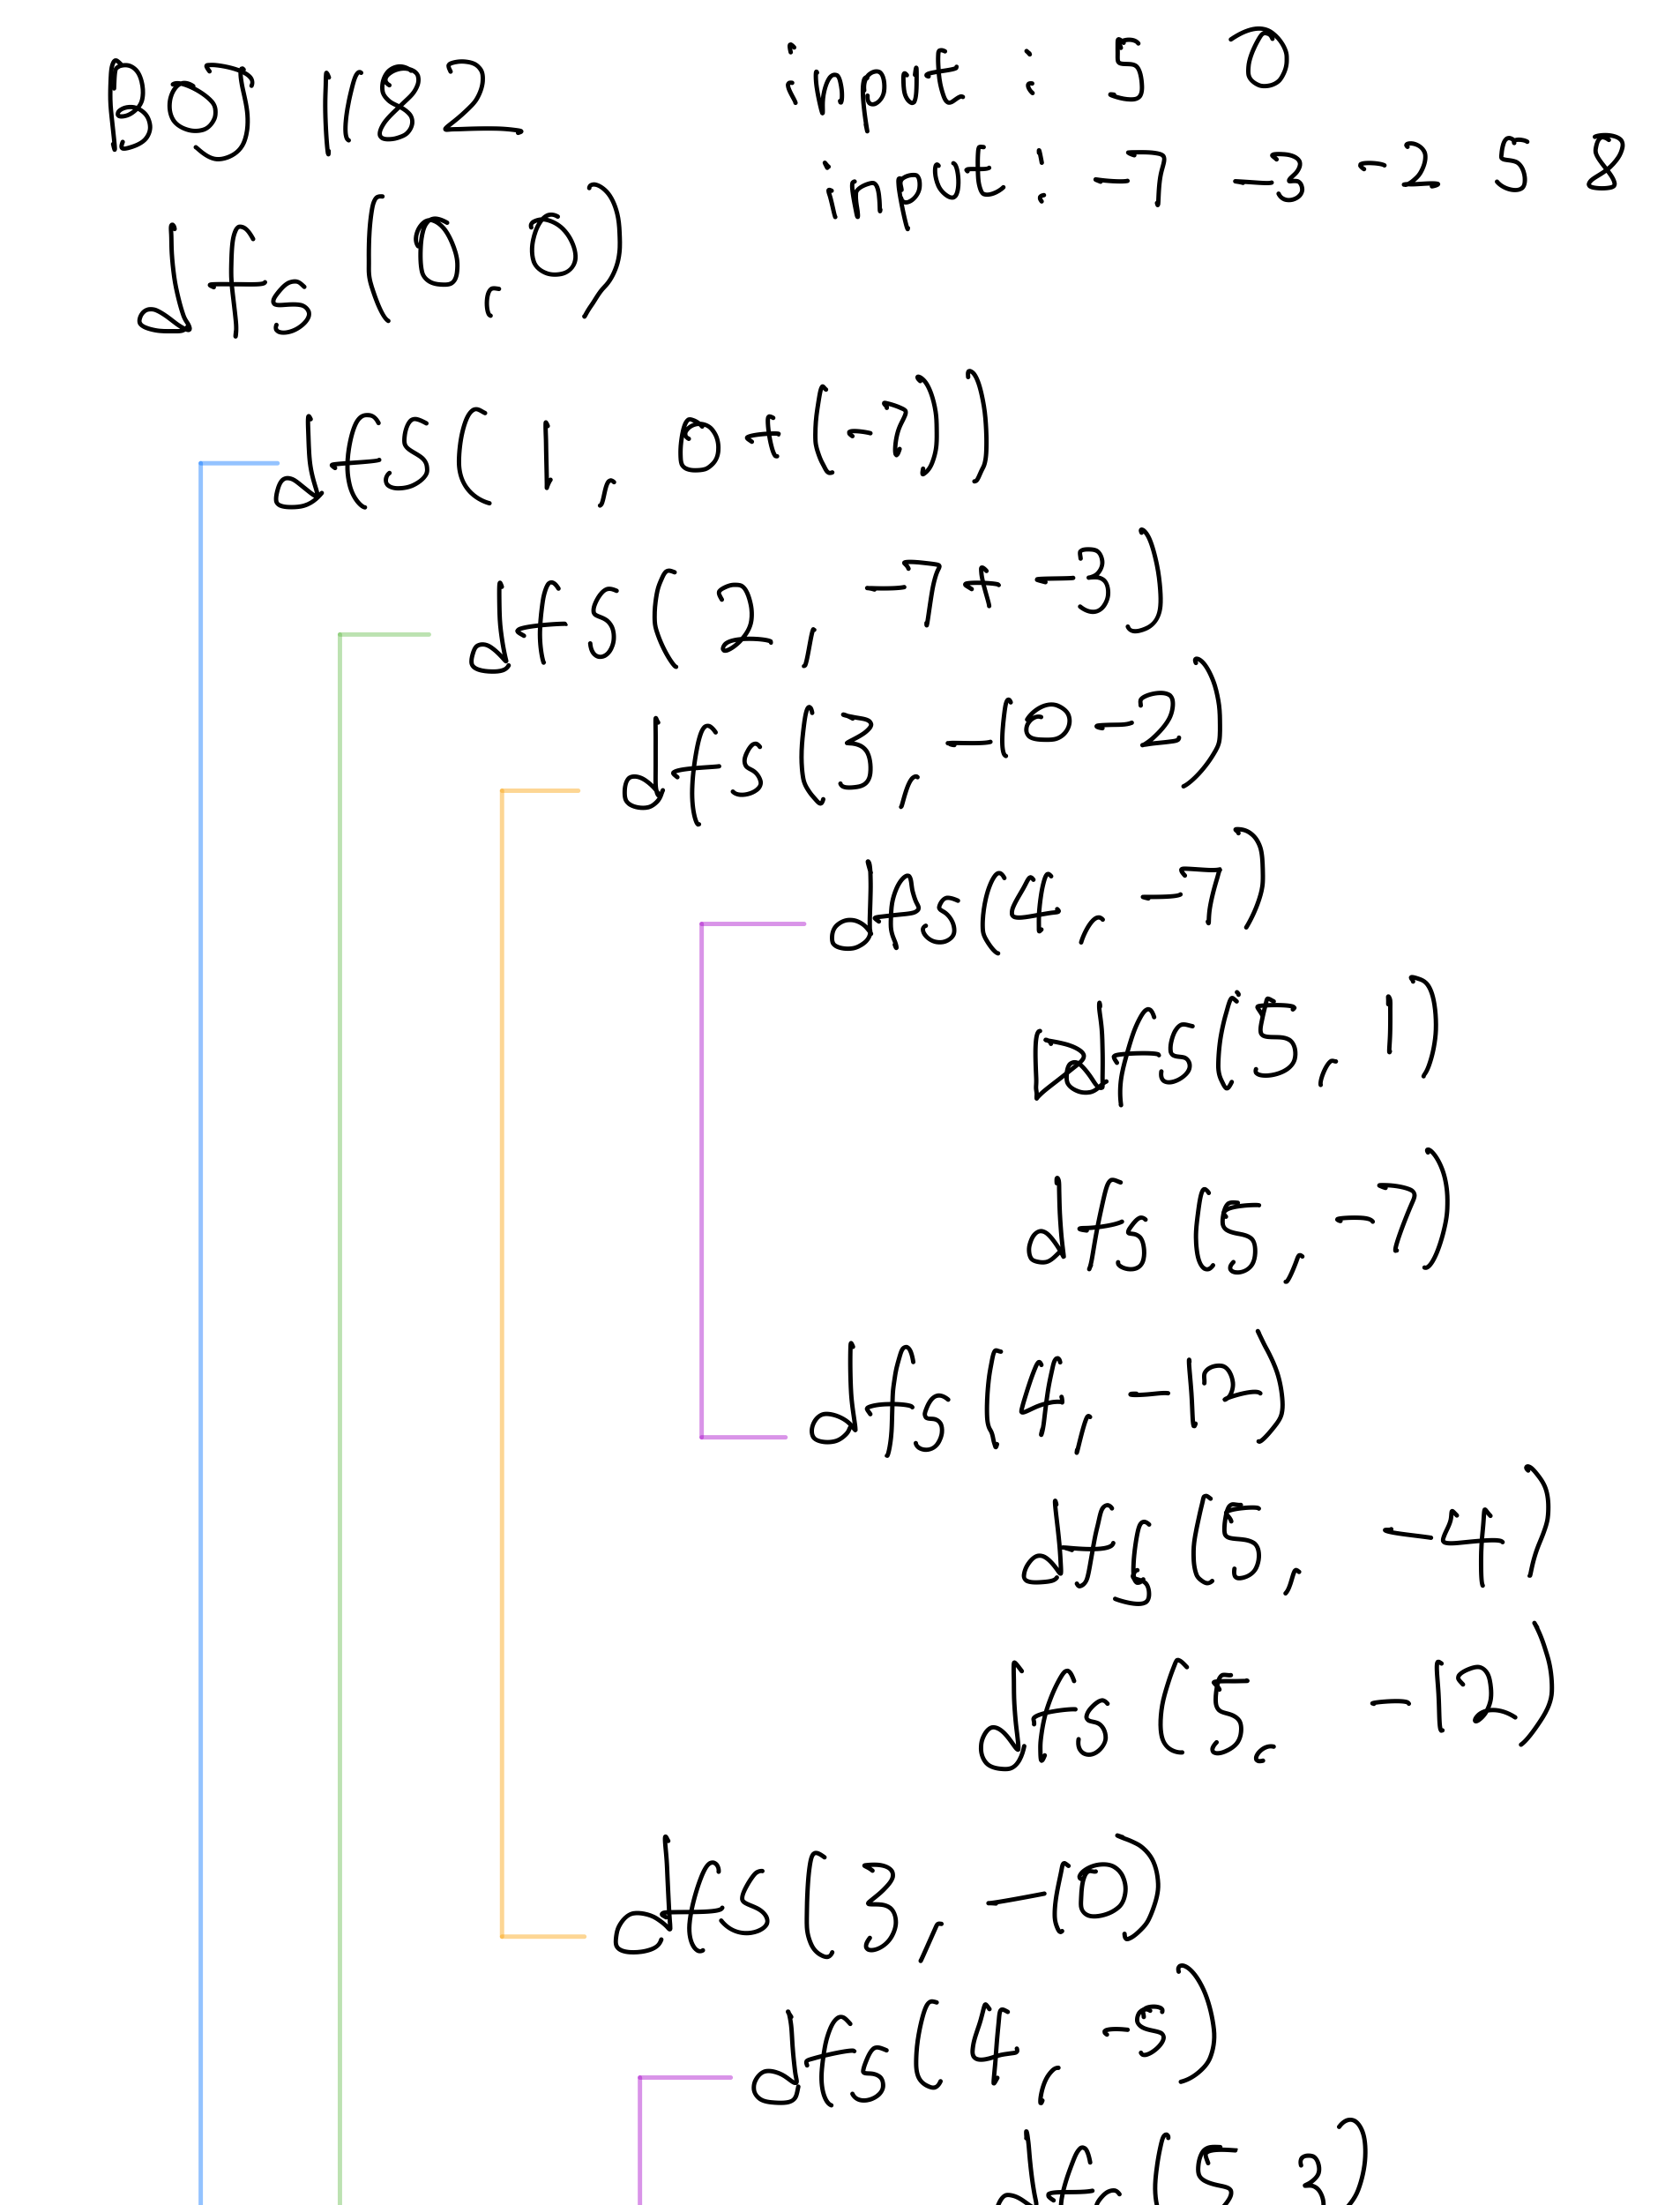 BOJ 1182
input : 5 0
input : -7 -3 -2 5 8
dfs (0, 0)
dfs(1, 0+(-7))
dfs(2, -7+ -3)
dfs(3, -10-2)
dfs(4, -7)
dfs(5, 1)
dfs(5, -7)
dfs(4, -12)
dfs(5, -4)
dfs(5, -12)
dfs(3, -10)
dfs(4, -5)
dfs(5, 3)